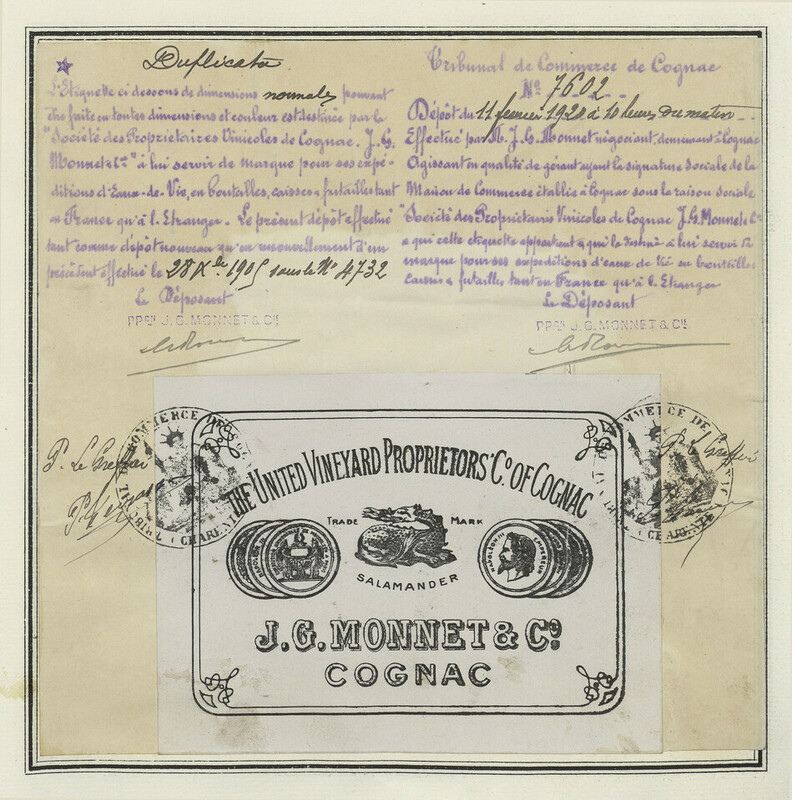 Duplicata
L'Etiquette ci dessous de dimensions normales pouvant
être faite en toutes dimensions et couleur est destinée par la
"Société des Proprietaires Vinicoles de Cognac. J.G.
Monnet & Cie" à lui servir de marque pour ses expé-
ditions d'Eaux-de-Vie, en bouteilles, caisses & futailles tant
en France qu'à l'Etranger. Le présent dépôt effectué
tant comme dépôt nouveau qu'en renouvellement d'un
précédent effectué le 28 Xbre 1905 sous le No 4732
Le Déposant
PPon J.G. MONNET & Cie
Tribunal de Commerce de Cognac
No 7602
Dépôt du 11 fevrier 1920 à 10 heures du matin
Effectué par M. J.G. Monnet négociant, demeurant à Cognac
Agissant en qualité de gérant ayant la signature Sociale de la
Maison de Commerce établie à Cognac sous la raison Sociale
"Société des Proprietaires Vinicoles de Cognac J.G. Monnet & Cie
a qui cette etiquette appartient & qui la destine à lui servir de
marque pour ses expeditions d'eaux de Vie en bouteilles
caisses & futailles tant en France qu'à l'Etranger
Le Déposant
PPon J.G. MONNET & Cie
P. Le Greffier
P. Le Greffier
THE UNITED VINEYARD PROPRIETORS' Co. OF COGNAC
TRADE MARK
SALAMANDER
NAPOLEON III EMPEREUR
J.G. MONNET & Co.
COGNAC